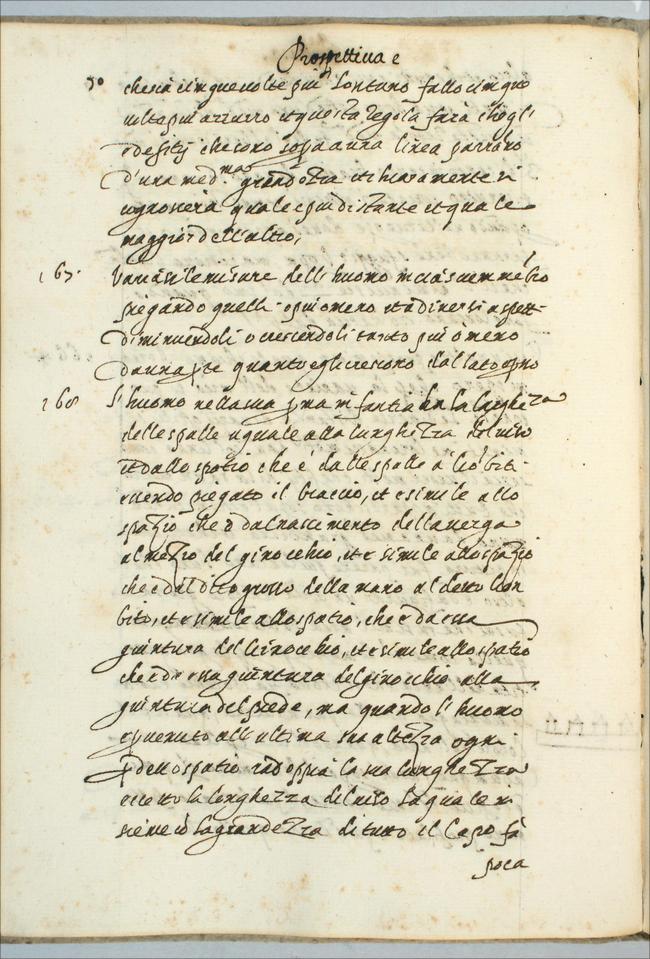 Prospettiva e
50 che sia cinque volte piu lontano fallo cinque
volte piu azzurro et questa regola farà che gli
edifitij che sono sopra una linea parrano
d'una med.ma grandezza et chiaramente si
cognoscerà quale è piu distante et qual è
maggior dell'altro,
167. Variasi le misure dell'huomo in ciascun membro
piegando quelli o piu o meno et a diversi aspetti
diminuendoli o crescendoli tanto piu ò meno
da una pte quanto egli crescono dal lato opp.to
168 L'huomo nella sua pma infantia ha la larghezza
delle spalle uguale alla lunghezza del viso
et dallo spatio che è dalle spalle à le gobita
essendo piegato il braccio, et è simile allo
spazio che è dal nascimento della verga
al mezzo del ginocchio, et è simile allo spazio
che è dal dito grosso della mano al detto gon
bito, et è simile allo spatio, che è da essa
giuntura del Ginocchio, et è simile allo spatio
che è da essa giuntura del ginocchio alla
giuntura del piede, ma quando l'huomo
è pvenuto all'ultima sua altezza ogni
pdetto spatio radoppia la sua lunghezza
eccetto la longhezza del viso la quale in
sieme cò la grandezza di tutto il Capo fà
poca